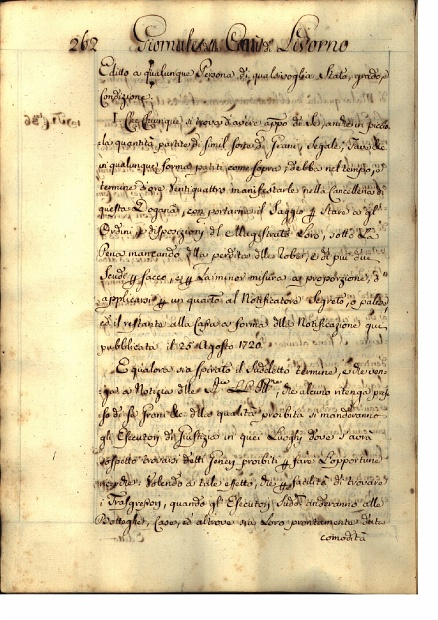 262 Livorno
Editto a qualunque Persona di qualsivoglia Stato, grado, e
Condizione.
I. Che chiunque si trova d'avere appo di Se, anche in picco
la quantità partite di simil sorte di Grani, Segale,
in qualunque forma patiti come sopra, debba nel tempo, e
termine d'ore Ventiquattro manifestarle nella Cancelleria di
questa Dogana, con portarne il Saggio stare a gl'
Ordini, e disposizioni del Magistrato Loro, sotto La
Pena mancando della perdita delle Robe, e di più
Scudi sacco, La minor misura a proporzione, d'
applicarsi un quarto al Notificatore Segreto, o palese
ed il restante alla Cassa a forma della Notificazione qui
pubblicata il 25 Agosto 1720
E qualora sia spirato il Suddetto termine, e che ven
ga a Notizia delle che alcuno ritenga pres
so di se Grani della qualità proibita si manderanno
gli Esecutori di Giustizia in quei Luoghi dove s'avrà
sospetto trovarsi detti generi proibiti fare L'opportune
Volendo a tale effetto, che facilità di trovare
i Trasgressori, quando gl' Esecutori anderanno alle
Botteghe, Case, ed altrove sia Loro prontamente data
comodità